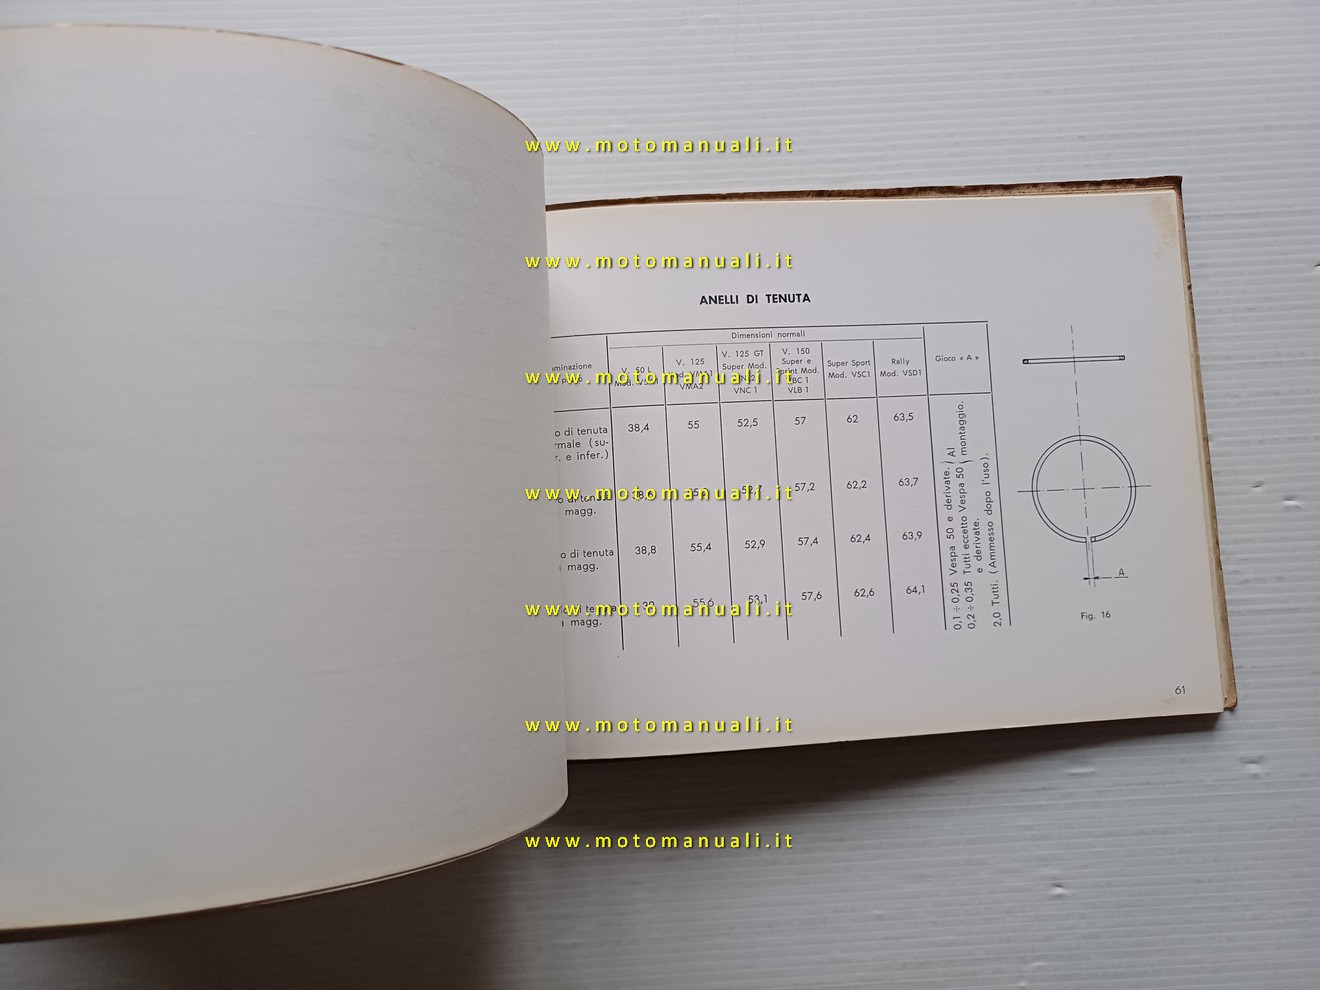 www.motomanuali.it
www.motomanuali.it
ANELLI DI TENUTA
Dimensioni normali
V. 50 L
V. 125
VMA2
V. 125 GT
Super Mod.
VNC 1
V. 150
Super e
Sprint Mod.
VBC 1
VLB 1
Super Sport
Mod. VSC1
Rally
Mod. VSD1
Gioco « A »
www.motomanuali.it
o di tenuta
rmale (su-
r. e infer.)
38,4 55 52,5 57 62 63,5
www.motomanuali.it
magg.
57,2 62,2 63,7
o di tenuta
magg.
38,8 55,4 52,9 57,4 62,4 63,9
www.motomanuali.it
magg.
39 55,6 53,1 57,6 62,6 64,1
0,1 ÷ 0,25 Vespa 50 e derivate. Al
0,2 ÷ 0,35 Tutti eccetto Vespa 50 montaggio.
e derivate.
2,0 Tutti. (Ammesso dopo l'uso).
A
Fig. 16
61
www.motomanuali.it
www.motomanuali.it